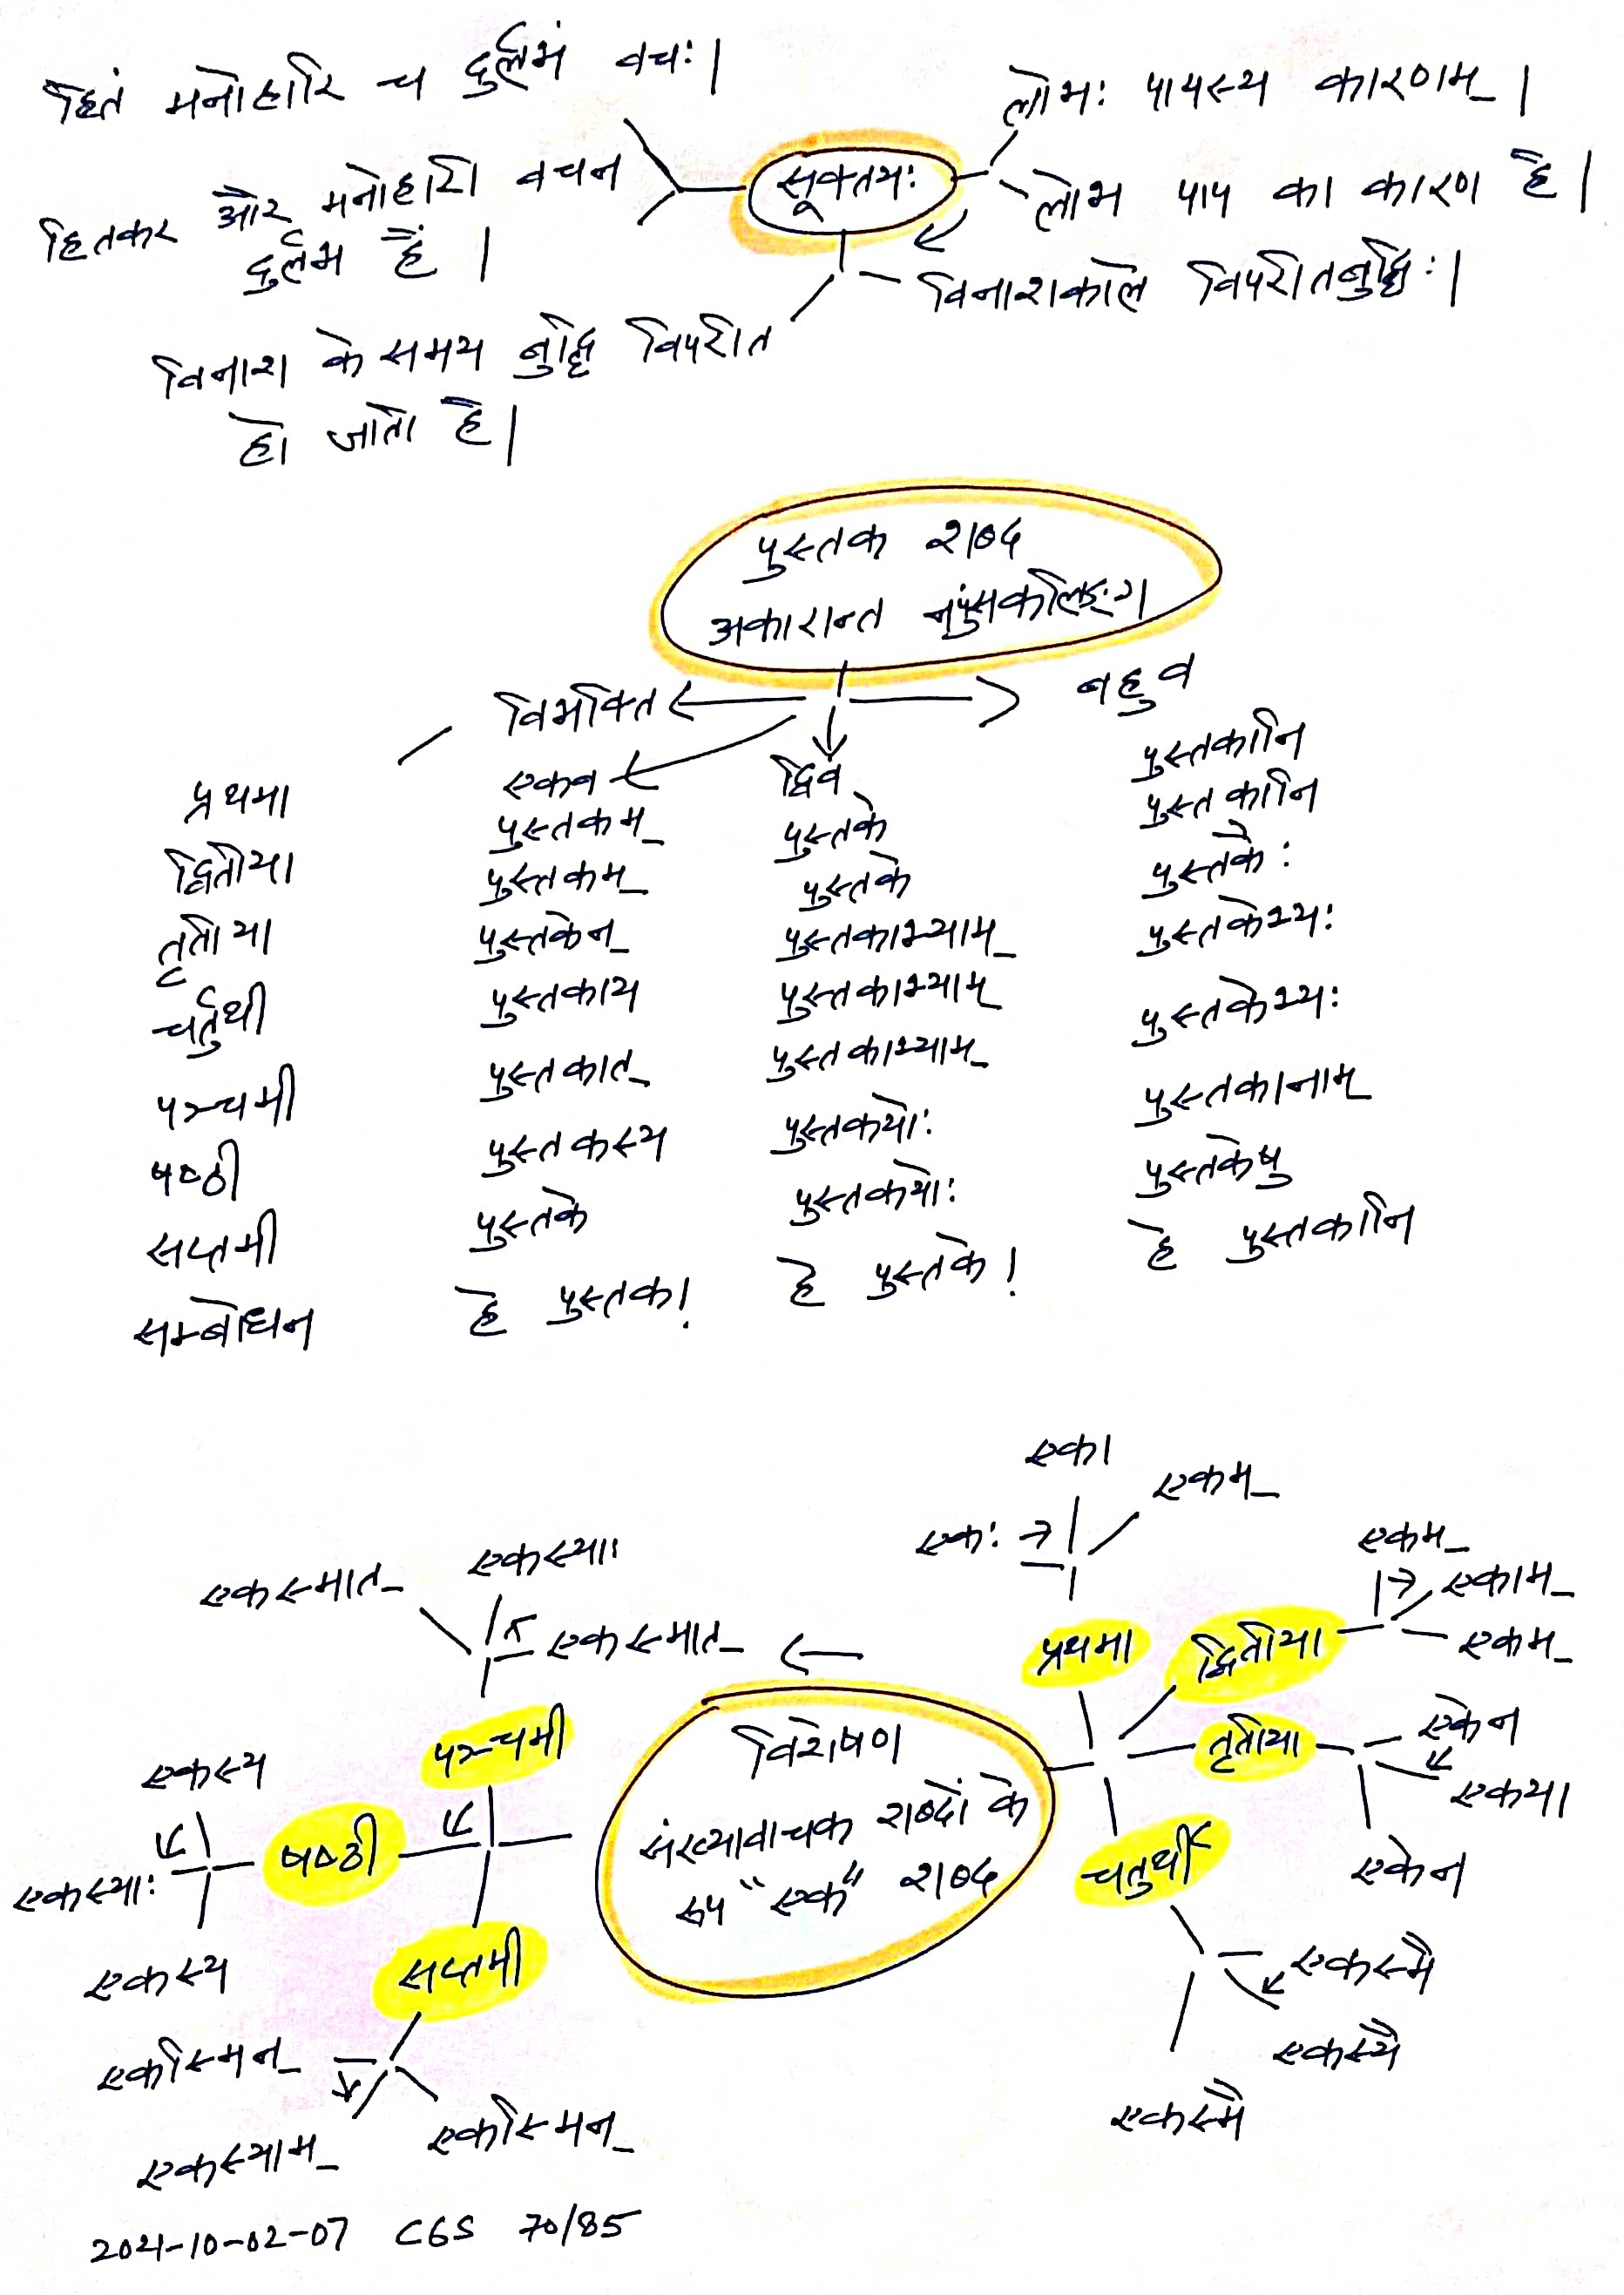 हितं मनोहारि च दुर्लभं वचः।
हितकर और मनोहारी वचन
दुर्लभ हैं।
सूक्तयः
लोभः पापस्य कारणम्।
लोभ पाप का कारण है।
विनाशकाले विपरीतबुद्धिः।
विनाश के समय बुद्धि विपरीत
हो जाती है।
पुस्तक शब्द
अकारान्त नपुंसकलिङ्ग
विभक्ति एकव द्विव बहुव
प्रथमा पुस्तकम् पुस्तके पुस्तकानि
द्वितीया पुस्तकम् पुस्तके पुस्तकानि
तृतीया पुस्तकेन् पुस्तकाभ्याम् पुस्तकैः
चर्तुथी पुस्तकाय पुस्तकाभ्याम् पुस्तकेभ्यः
पञ्चमी पुस्तकात् पुस्तकाभ्याम् पुस्तकेभ्यः
षष्ठी पुस्तकस्य पुस्तकयोः पुस्तकानाम्
सप्तमी पुस्तके पुस्तकयोः पुस्तकेषु
सम्बोधन हे पुस्तक! हे पुस्तके! हे पुस्तकानि
विशेषण
संख्यावाचक शब्दों के
रूप "एक" शब्द
प्रथमा
एकः
एका
एकम्
द्वितीया
एकम्
एकाम्
एकम्
तृतीया
एकेन
एकया
एकेन
चतुर्थी
एकस्मै
एकस्यै
एकस्मै
पञ्चमी
एकस्मात्
एकस्याः
एकस्मात्
षष्ठी
एकस्य
एकस्याः
एकस्य
सप्तमी
एकस्मिन्
एकस्याम्
एकस्मिन्
2021-10-02-07 CGS 70/85